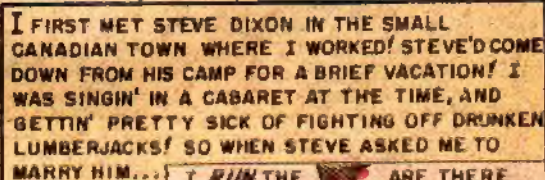 I FIRST MET STEVE DIXON IN THE SMALL
CANADIAN TOWN WHERE I WORKED! STEVE'D COME
DOWN FROM HIS CAMP FOR A BRIEF VACATION! I
WAS SINGIN' IN A CABARET AT THE TIME, AND
GETTIN' PRETTY SICK OF FIGHTING OFF DRUNKEN
LUMBERJACKS! SO WHEN STEVE ASKED ME TO
MARRY HIM...!
I RUN THE ARE THERE